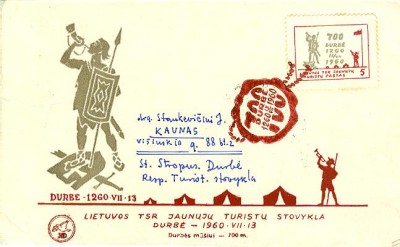 700
DURBĖ
1260
1960
LIETUVOS TSR JAUNŲJŲ
TURISTŲ PAŠTAS
5
DURBĖ
1260 1960
drg. Stankevičiui J.
KAUNAS
g. 88 bt. 2
St. Stropus. Durbė
Resp. Turist. stovykla
DURBĖ-1260-VII-13
LIETUVOS TSR JAUNŲJŲ TURISTŲ STOVYKLA
DURBĖ – 1960-VII-13
Durbės mūšiui – 700 m.